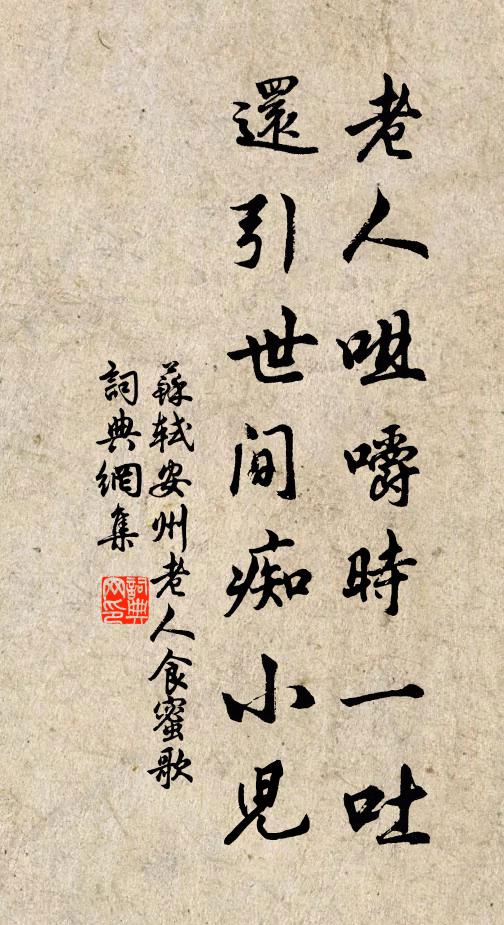 老人咀嚼時一吐
還引世間痴小兒
蘇軾安州老人食蜜歌
詞典網集
詞典網印